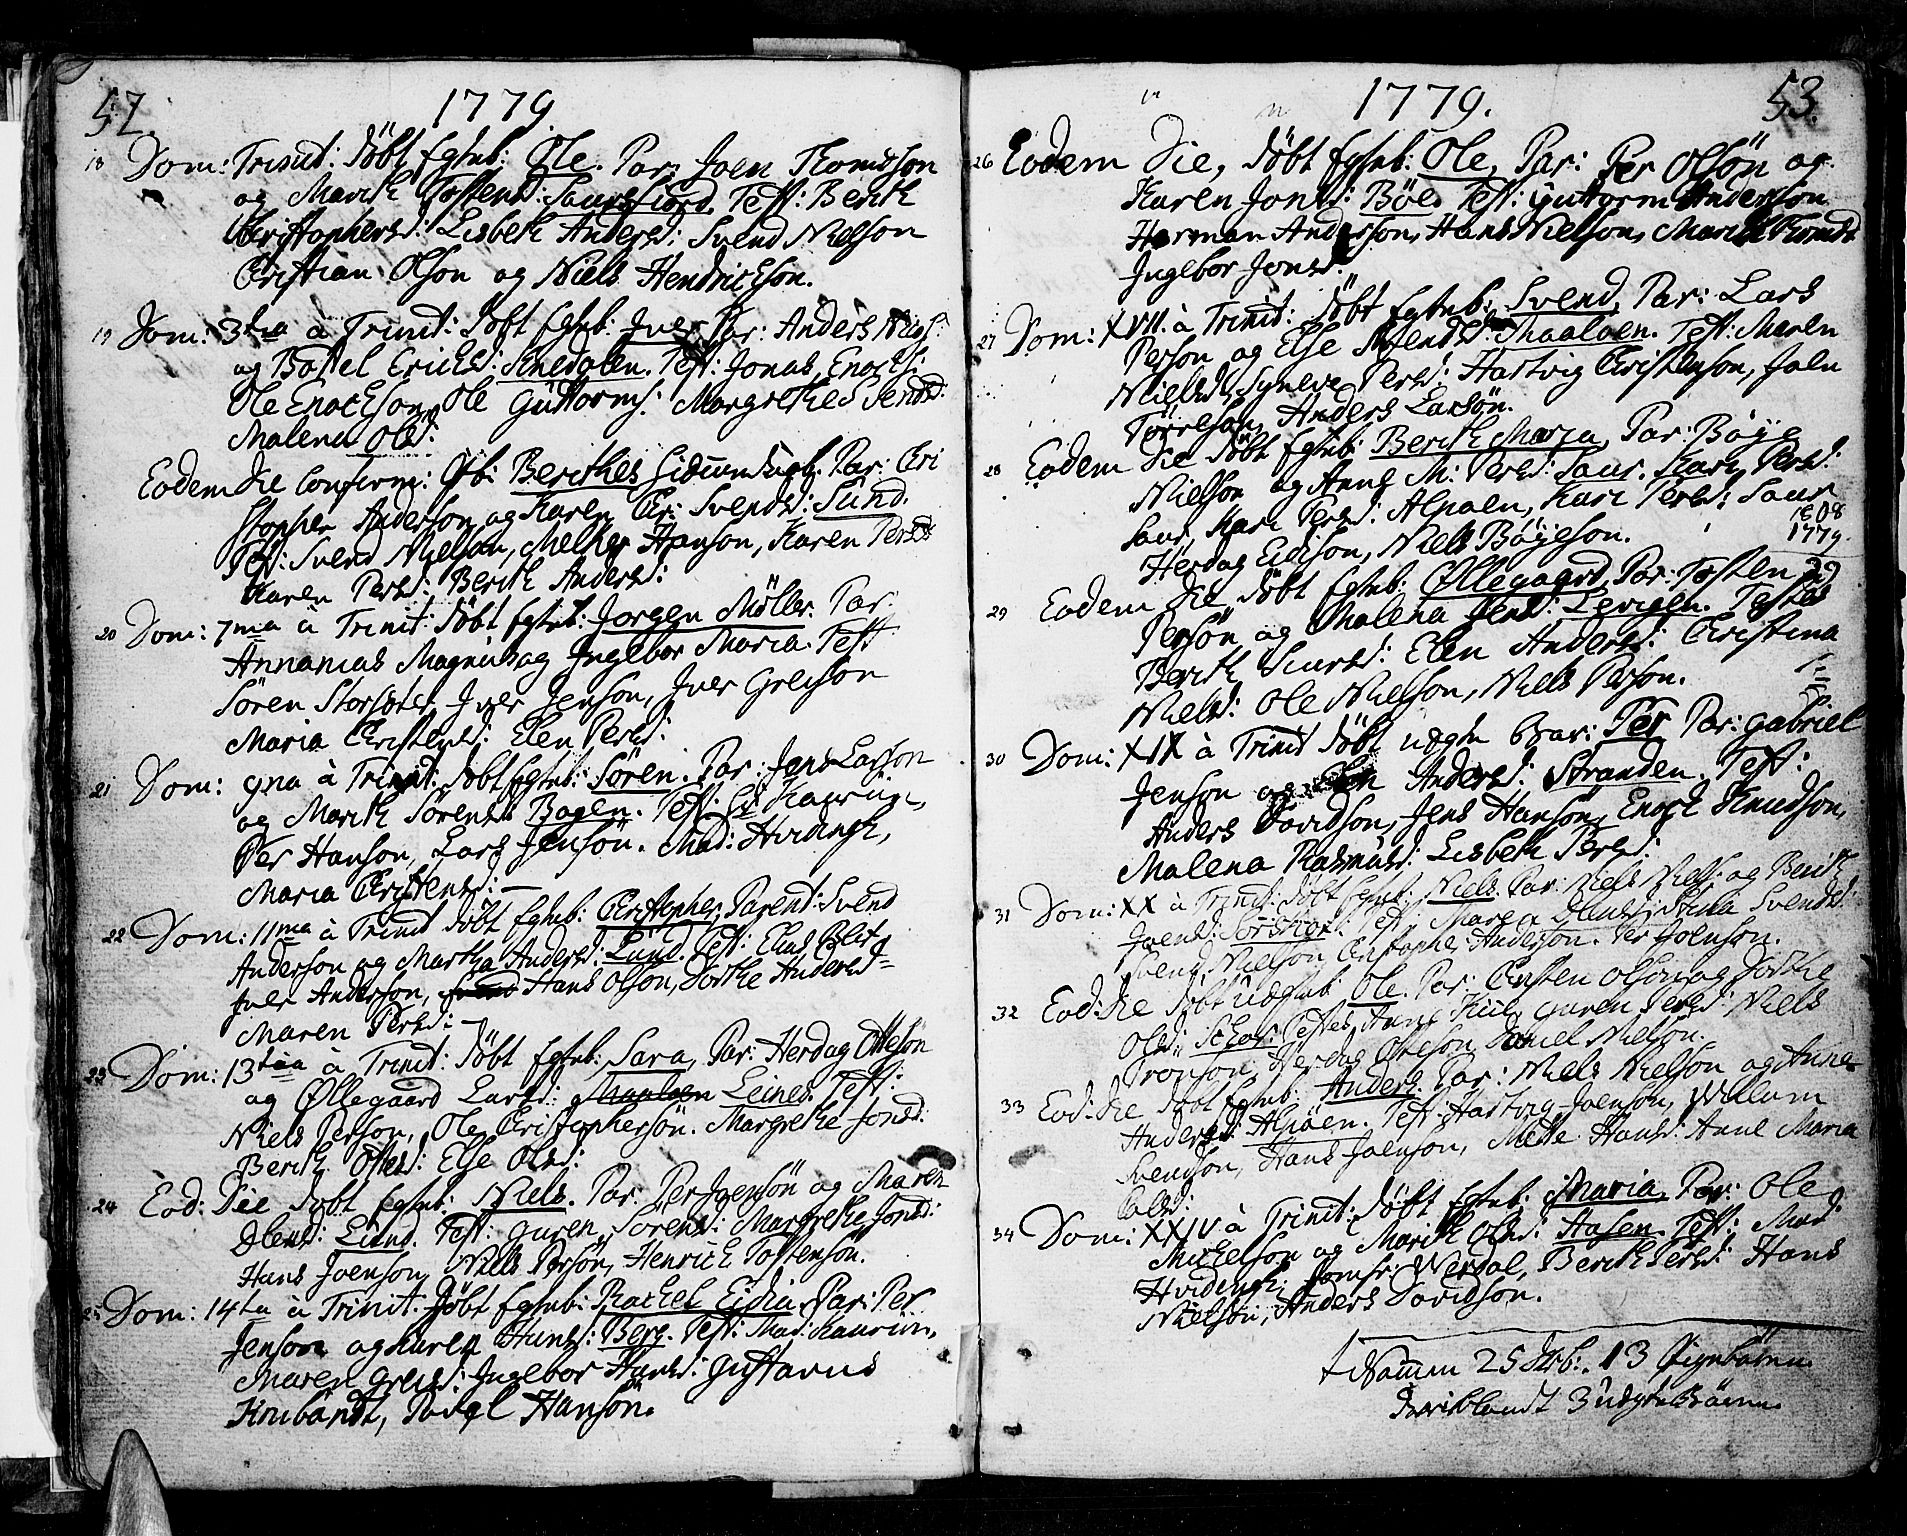 52. 1779
18 Dom: Trinit: döbt Egtb: Ole. Par: Joen Thomесson
og Marith Tostensd: Saursfiord. Test: Berith
Christophersd: Lisbeth Andersd: Svend Nielson
Christian Olson og Niels Hendrickson.
19 Dom: 3tia à Trinit: döbt Egtb: Iver Par: Anders Nels:
og Bastel Ericksd: Knedalen. Test: Jonas Enocks:
Ole Enockson, Ole Guttorms: Margrethe Svendsd:
Malena Olsd:
Eodem die Confirm: Berithes Par: Cri
stopher Anderson og Karen Chr: Svendsd: Sund.
Test: Svend Nielson, Melkher Hanson, Karen Persd:
Karen Persd: Berith Andersd:
20 Dom: 7ma à Trinit: döbt Egtb: Jorgen Möller: Par:
Annanias Magnus og Ingebor Maria. Test
Sören Storsoter, Iver Jenson, Iver Greison
Maria Christensd: Elen Persd:
21 Dom: 9na à Trinit: döbt Egtb: Sören. Par: Jens Larson
og Marith Sörensd: Bogen. Test: Hr Kaurin,
Per Hanson, Lars Jenson. Mad: Hvidingh,
Maria Christensd: —
22 Dom: 11ma à Trinit döbt Egtb: Christopher, Parent: Svend
Anderson og Martha Andersd: Lund. Test: Elias Blix,
Iver Anderson, Hans Olson, Dorthe Andersd=
Maren Persd: —
23 Dom: 13tia à Trinit: döbt Egtb: Sara, Par: Herdag Otteson
og Øllegaard Larsd: Leines. Test:
Niels Person, Ole Christopherson. Margrethe Jonsd:
Berith Ottesd: Else Olsd:
24 Eod: Die döbt Egtb: Niels. Par: Per Joenson og Maren
Olensd: Lund. Test: Guren Sörensd: Margrethe Jonsd:
Hans Joenson, Niels Person, Henrich Tostenson.
25 Dom: 14ta à Trinit. döbt Egtb: Rachel Eidia. Par: Per
Jenson og Karen Hansd: Berg. Test: Mad: Kaurin,
Maren Greisd: Ingebor Hansd: Gustavus
Hanson.
1779. 53.
26 Eodem Die, döbt Egtb: Ole, Par: Per Olsön og
Karen Jonsd: Böe. Test: Guttorm Anderson
Herman Anderson, Hans Nielson, Marith
Ingebor Jonsd:
27 Dom: XVII. à Trinit: döbt Egtb: Svend, Par: Lars
Person og Else Svendsd: Thaaloen. Test: Maren
Nielsd, Syneve Persd: Hartvig Christenson, Joen
Törreson, Anders Larsön.
28 Eodem Die döbt Egtb: Berith Maria, Par: Böye
Nielson og Anne M: Persd: Saur. Kari Persd:
Saur, Kari Persd: Alpøen, Kari Persd: Saur
Herdag Eidison, Niels Böyeson.
1808
1779
29
29 Eodem Die döbt Egtb: Øllegaard, Par: Tosten
Persön og Malena Jensd: Levigen. Testes
Berith Siursd: Elen Andersd: Christina
Nielsd: Ole Nielson, Niels Person.
30 Dom: XIX à Trinit döbt uægte Bar: Per Par: Gabriel
Jenson og Andersd: Stranden. Test:
Anders Davidson, Jens Hanson, Enock Knudson,
Malena Rasmusd: Lisbeth Persd:
31 Dom: XX à Trinit: döbt Egtb: Niels. Par: Niels Niels: og Berith
Joensd: Sörskar. Test: Maren Stina Svendsd:
Svend Nielson Christopher Anderson. Per Joenson.
32 Eod: Die döbt Uægteb: Ole. Par: Christen Olson og Dorthe
Olsd: Testes, Anne Kiil, Guren Persd: Niels
Tronson, Herdag Otteson Daniel Nielson.
33 Eod: Die döbt Egtb: Anders. Par: Niels Nielson og Anne
Andersd: Alpöen. Test: Hartvig Joenson, Willum
Svendson, Hans Joenson, Mette Hansd: Anne Maria
Colsd:
34 Dom: XXIV à Trinit: döbt Egtb: Maria. Par: Ole
Michelson og Marith Olsd: Hasen. Test: Mad:
Hvidingh, Jomfr: Werdal, Berith Persd: Hans
Nielson, Anders Davidson.
25 13
3